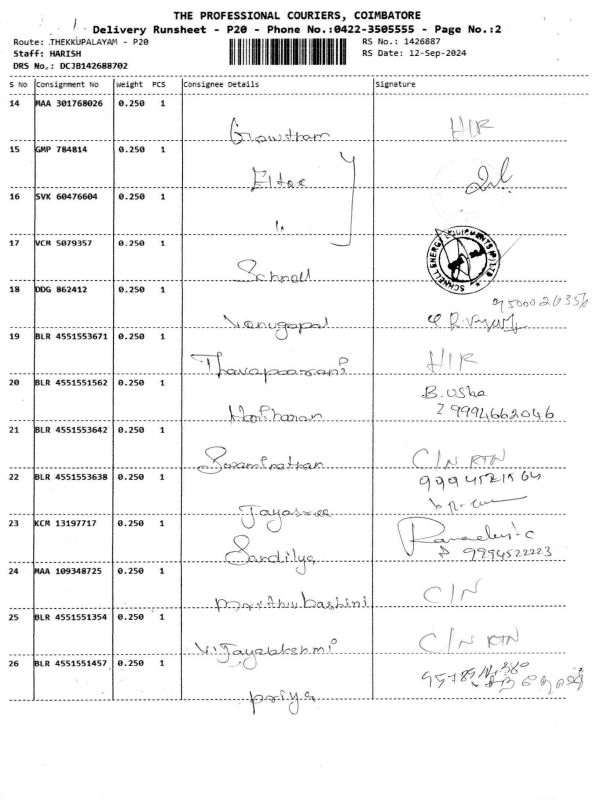 THE PROFESSIONAL COURIERS, COIMBATORE
Delivery Runsheet - P20 - Phone No.:0422-3505555 - Page No.:2
Route: THEKKUPALAYAM - P20 RS No.: 1426887
Staff: HARISH RS Date: 12-Sep-2024
DRS No.: DCJB142688702
S No Consignment No Weight PCS Consignee Details Signature
14 MAA 301768026 0.250 1
Gowtham H/R
15 GMP 784814 0.250 1
16 SVK 60476604 0.250 1
17 VCM 5079357 0.250 1
SCHNELL ENERGY EQUIPMENTS (P) LTD
Schnell
18 DDG 862412 0.250 1
Venugopal
19 BLR 4551553671 0.250 1
H/R
20 BLR 4551551562 0.250 1 B. Usha
Hariharan 9994662046
21 BLR 4551553642 0.250 1
C/N RTN
22 BLR 4551553638 0.250 1
Jayasree
23 KCM 13197717 0.250 1
Sandilya 9994522223
24 MAA 109348725 0.250 1
C/N
25 BLR 4551551354 0.250 1
Vijayalakshmi C/N RTN
26 BLR 4551551457 0.250 1
Priya